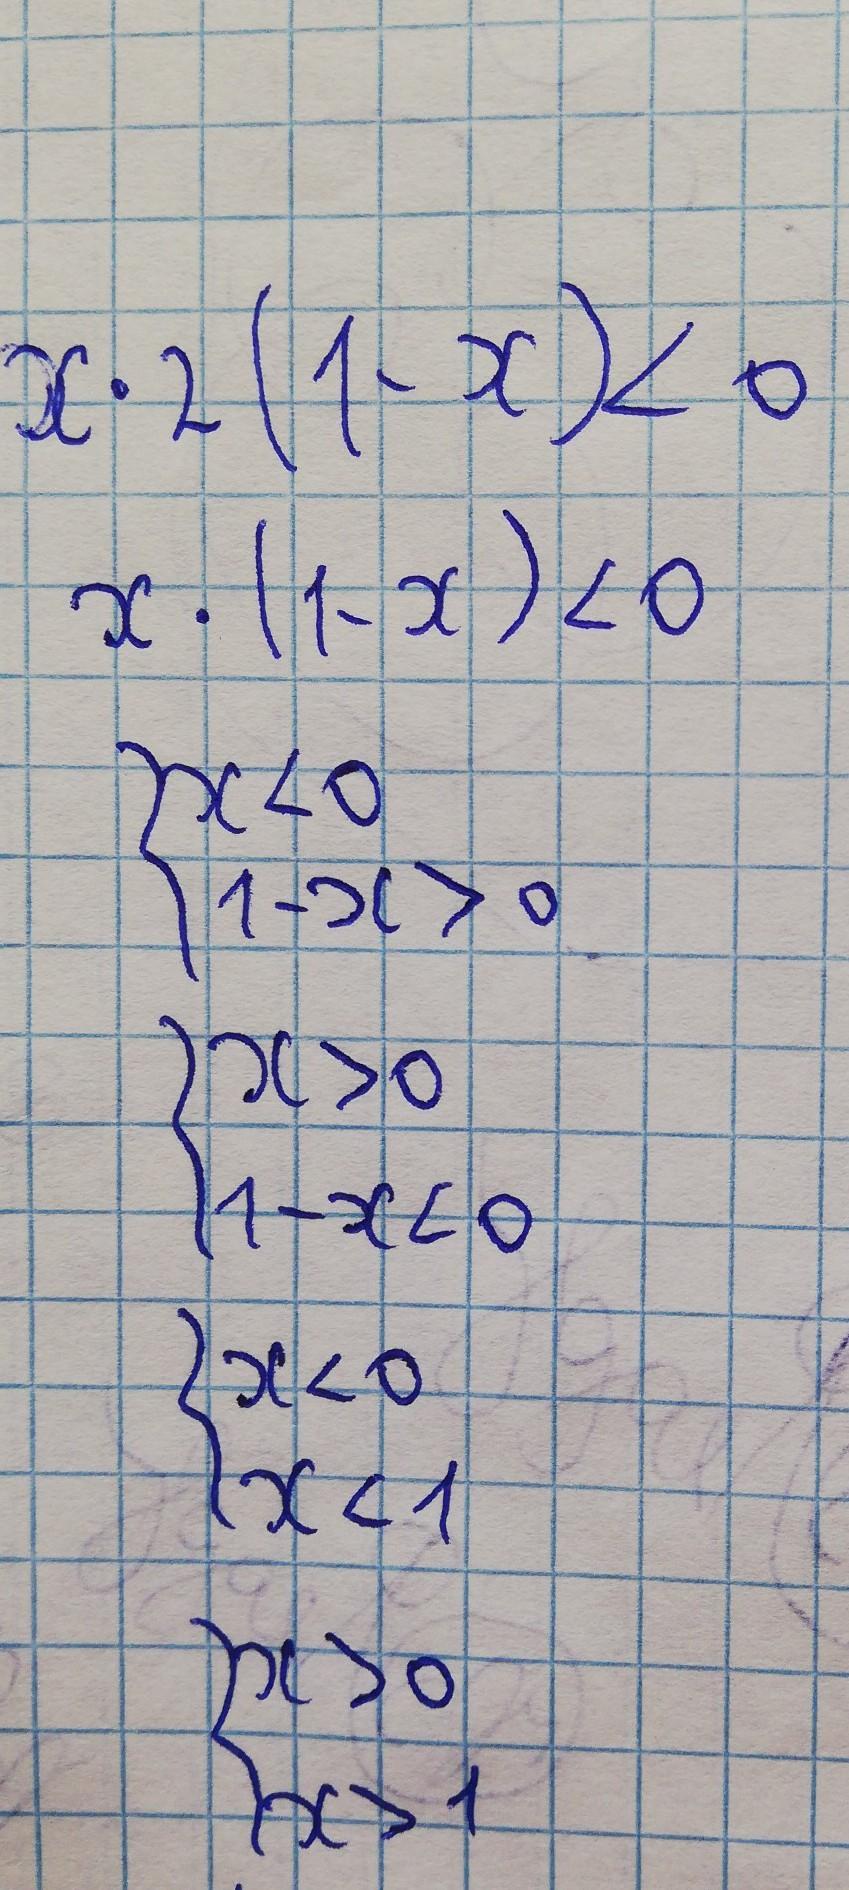 x·2(1-x)<0
x·(1-x)<0
{x<0
1-x>0
{x>0
1-x<0
{x<0
x<1
{x>0
x>1